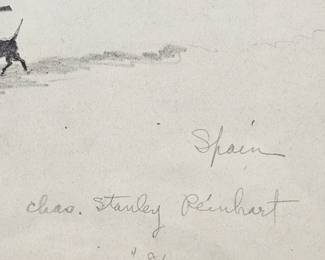 Spain
Chas. Stanley Reinhart